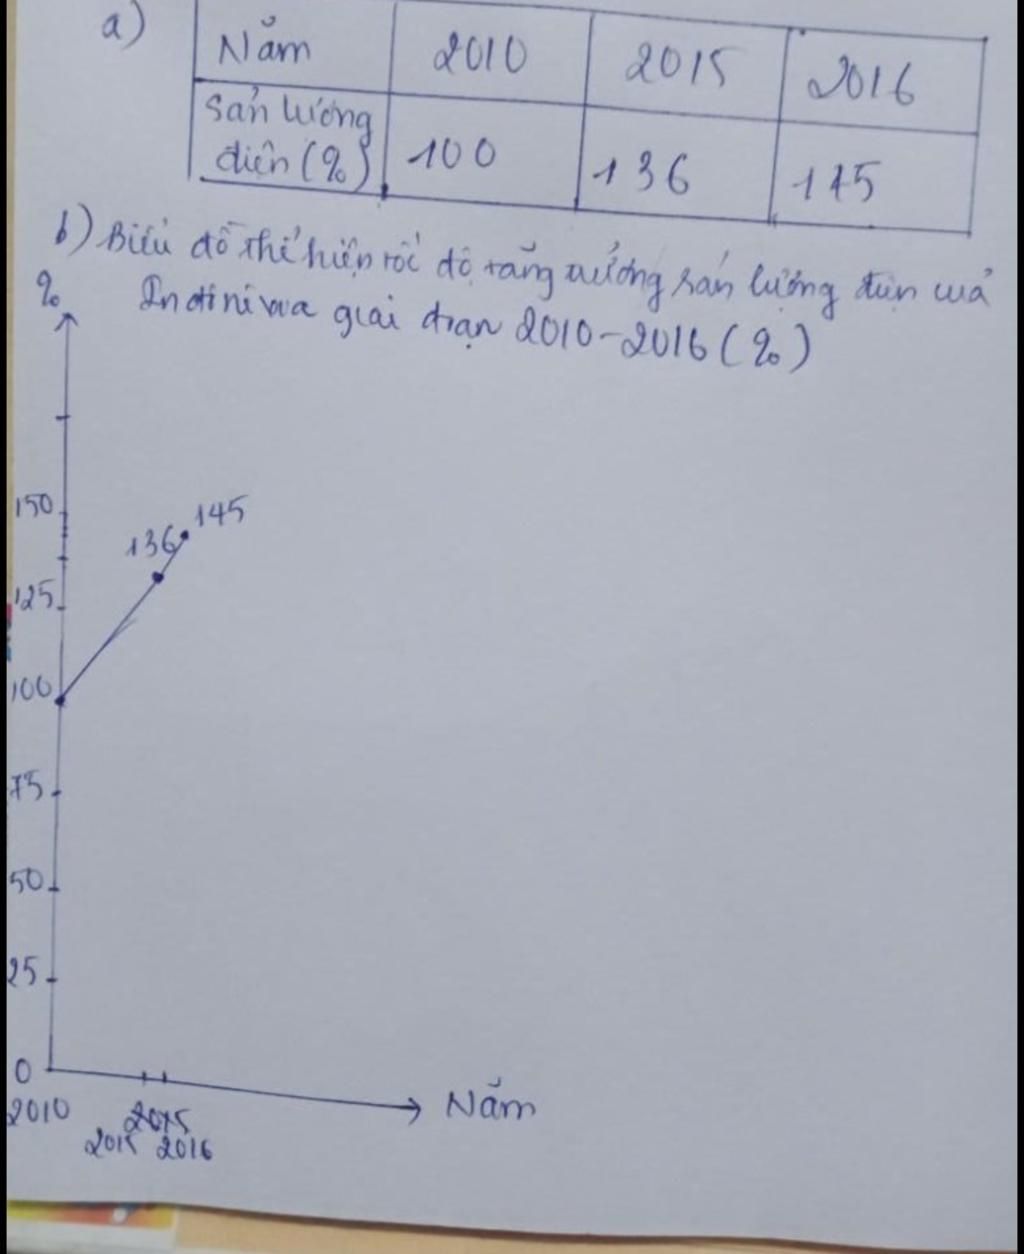 a)
Năm 2010 2015 2016
Sản lượng
điện (%) 100 136 145
b) Biểu đồ thể hiện tốc độ tăng trưởng sản lượng điện của
% Inđônêxia giai đoạn 2010-2016 (%)
150
145
136
125
100
75
50
25
0
Năm
2010 2015
2015 2016